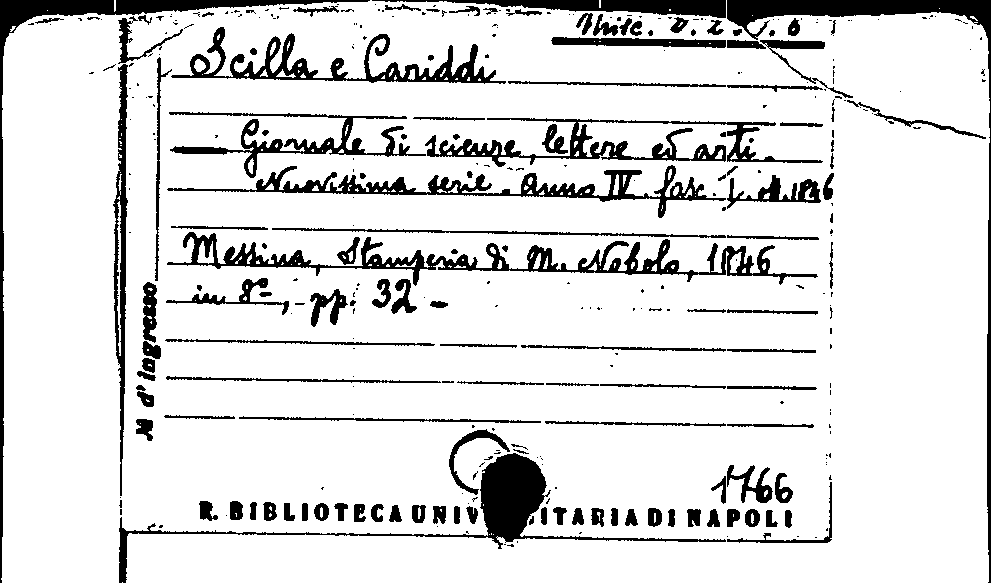 Misc. D. 2. 6
Scilla e Cariddi
— Giornale di scienze, lettere ed arti.
Nuovissima serie. Anno IV. fasc. I. 1846
Messina, Stamperia di M. Nobolo, 1846,
in 8º, pp. 32 -
N d'ingresso
1766
R. BIBLIOTECA UNIV ITARIA DI NAPOLI